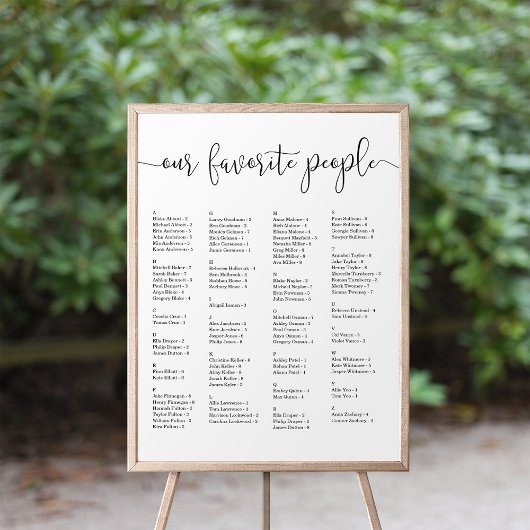 our favorite people
A
Blake Abbott - 2
Michael Abbott - 2
Erin Anderson - 5
John Anderson - 5
Mia Anderson - 5
Knox Anderson - 5
B
Mitchell Baker - 7
Sarah Baker - 7
Ashley Bennett - 3
Paul Bennett - 3
Anya Blake - 4
Gregory Blake - 4
C
Ceecila Cruz - 3
Tomas Cruz - 3
D
Ella Draper - 2
Philip Draper - 2
James Dutton - 8
E
Finn Elliott - 8
Kate Elliott - 8
F
Jake Finnegan - 8
Henry Finnegan - 8
Hannah Fulton - 3
Taylor Fulton - 3
William Fulton - 3
Kira Fulton - 3
G
Laney Goodman - 2
Ben Goodman - 2
Monica Gelman - 7
Rich Gelman - 7
Alice Goranson - 1
Jamie Goranson - 1
H
Rebecca Holbrook - 4
Sam Holbrook - 4
Siobhan Howe - 6
Zachary Howe - 6
I
Abigail Inman - 3
J
Alex Jacobson - 2
Kate Jacobson - 2
Jasper Jones - 6
Philip Jones - 6
K
Christine Keller - 5
John Keller - 5
Abby Keller - 5
Jonah Keller - 5
James Kyler - 2
L
Allie Lawrence - 4
Tom Lawrence - 4
Harrison Lockwood - 2
Caroline Lockwood - 2
M
Anna Malone - 4
Rich Malone - 4
Eliana Malone - 4
Bennett Mayfield - 3
Natasha Miller - 6
Greg Miller - 8
Miles Miller - 8
Ava Miller - 8
N
Blake Naylor - 2
Michael Naylor - 2
Erin Newman - 5
John Newman - 5
O
Mitchell Osman - 7
Ashley Osman - 3
Paul Osman - 3
Anya Osman - 4
Gregory Osman - 4
P
Ashley Patel - 1
Rohan Patel - 1
Aliana Patel - 1
Q
Emiley Quinn - 4
Max Quinn - 4
R
Ella Draper - 2
Philip Draper - 2
James Dutton - 8
S
Finn Sullivan - 6
Kate Sullivan - 6
Georgia Sullivan - 6
Sawyer Sullivan - 6
T
Annabel Taylor - 8
Jake Taylor - 8
Henry Taylor - 8
Marcella Turnberry - 3
Roman Turnberry - 3
Mark Twomey - 7
Sienna Twomey - 7
U
Rebecca Umstead - 4
Sam Umstead - 4
V
Cal Vance - 3
Violet Vance - 3
W
Alex Whitmore - 5
Kate Whitmore - 5
Jasper Whitmore - 5
Y
Allie Yoo - 1
Tom Yoo - 1
Z
Anna Zachary - 4
Connor Zachary - 4